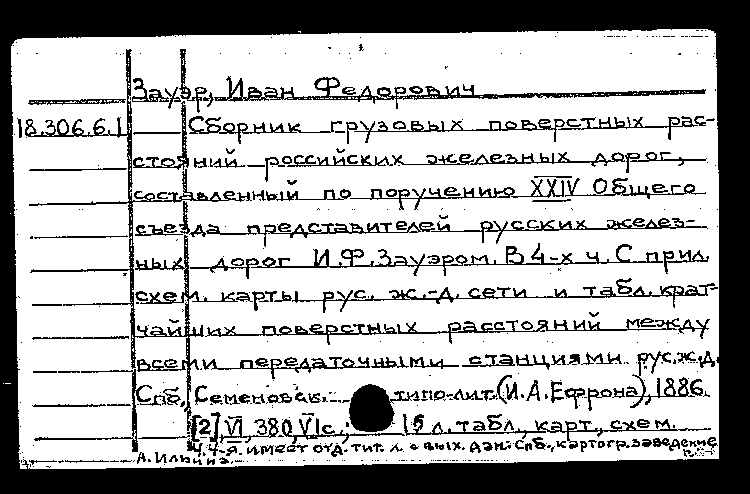 Зауэр, Иван Федорович
18.306.6.1 Сборник грузовых поверстных рас-
стояний российских железных дорог,
составленный по поручению XXIV Общего
съезда представителей русских желез-
ных дорог И.Ф.Зауэром. В 4-х ч. С прил.
схем. карты рус. ж.-д. сети и табл. крат-
чайших поверстных расстояний между
всеми передаточными станциями рус.ж.д.
Спб., Семеновск. типо-лит. (И.А.Ефрона), 1886.
[2], VI, 380, VI с.; 15 л. табл., карт., схем.
Ч.4-я. имеет отд. тит. л. с вых. дан.: Спб., картогр. заведение
А. Ильина.